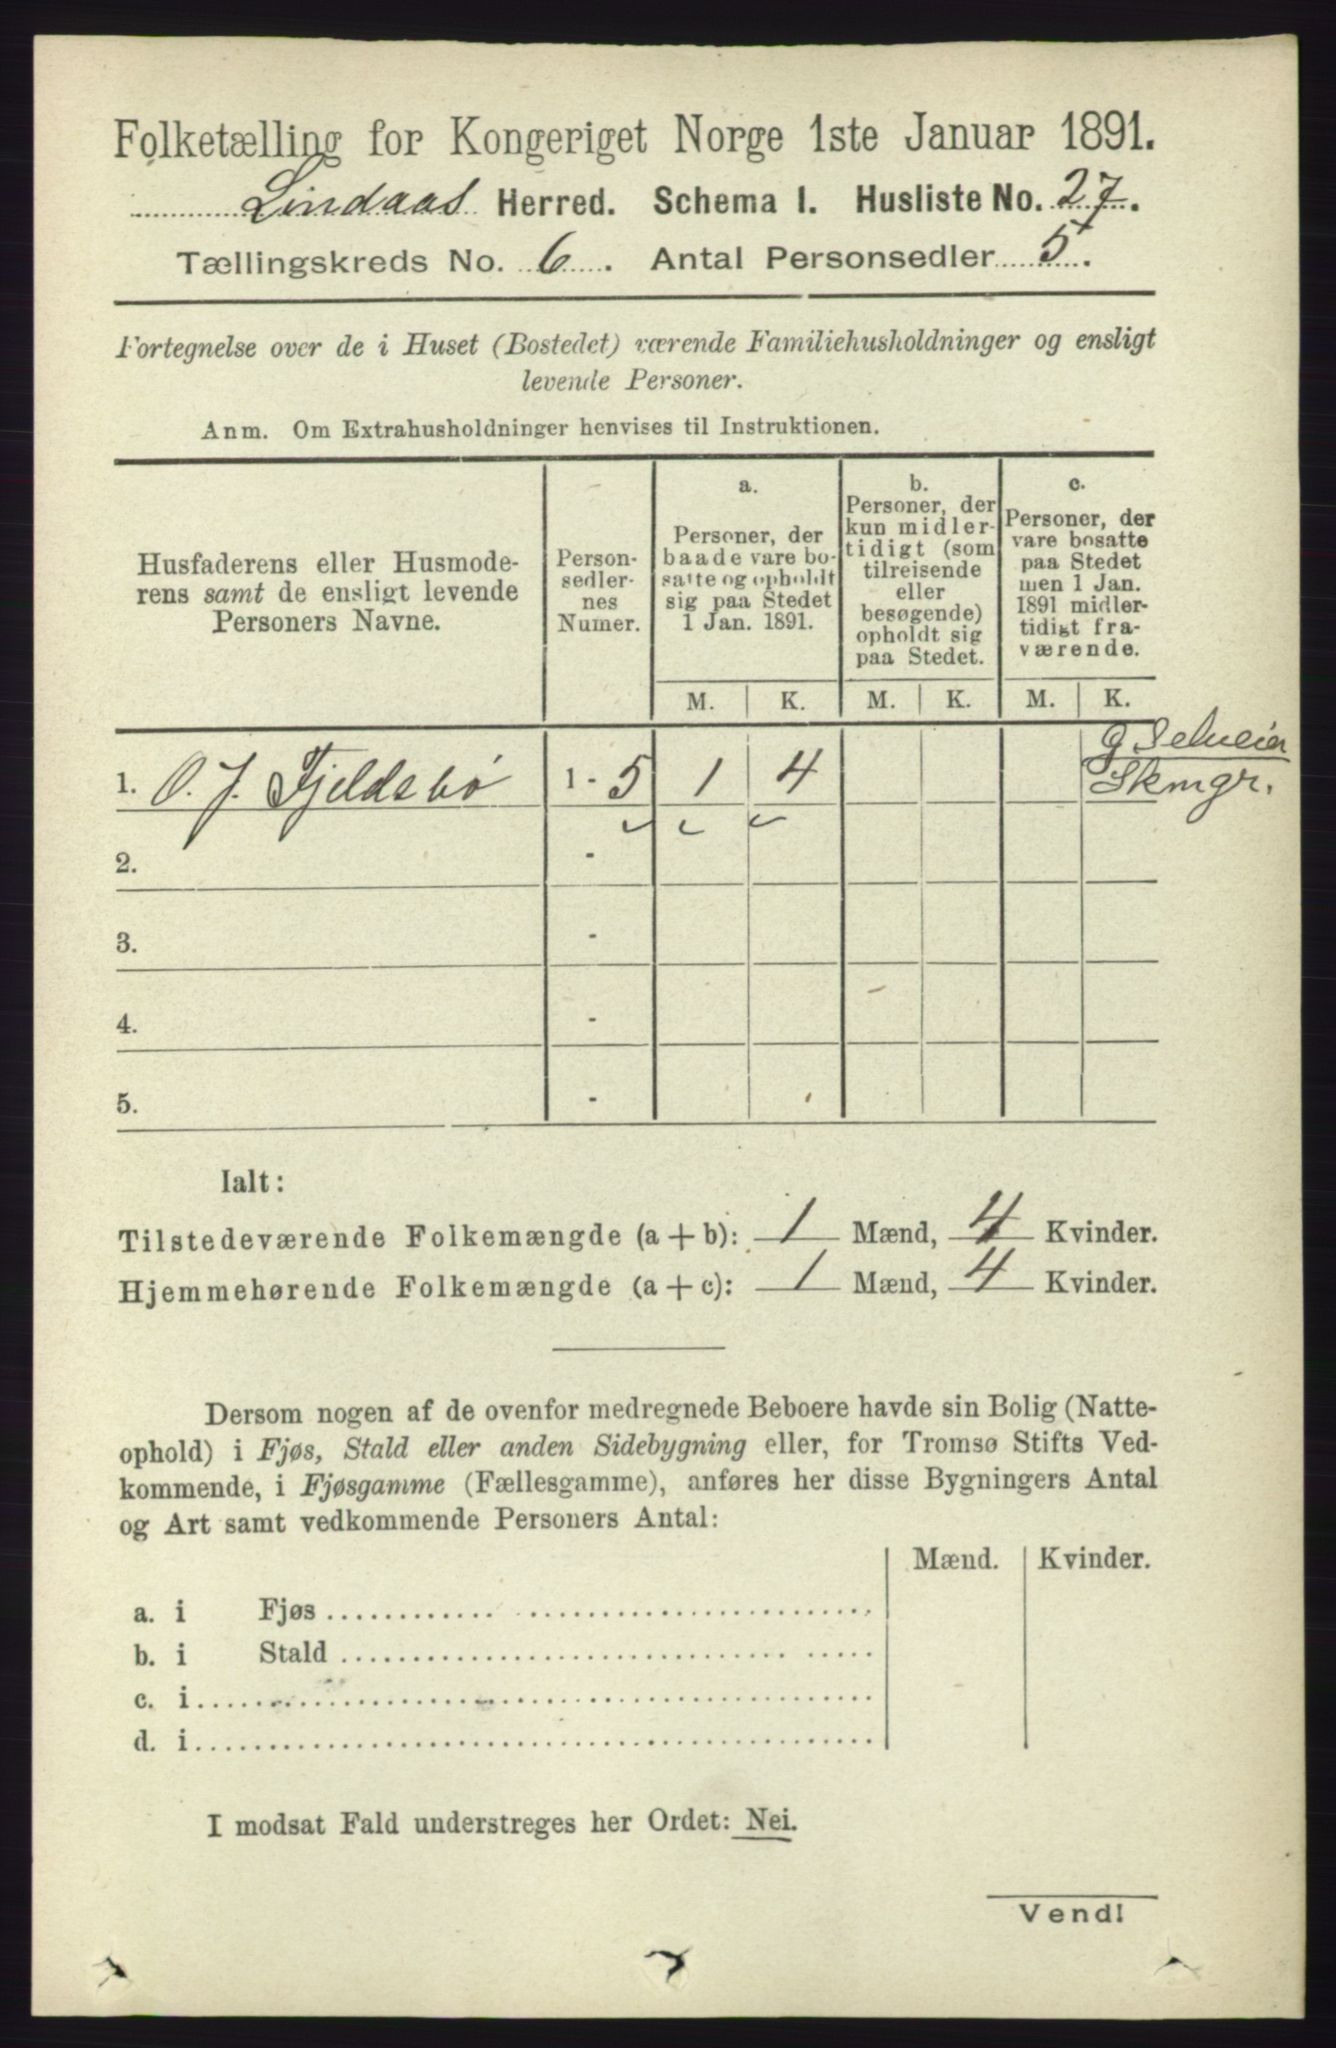 Folketælling for Kongeriget Norge 1ste Januar 1891.
Lindaas Herred. Schema I. Husliste No. 27.
Tællingskreds No. 6. Antal Personsedler 5.
Fortegnelse over de i Huset (Bostedet) værende Familiehusholdninger og ensligt
levende Personer.
Anm. Om Extrahusholdninger henvises til Instruktionen.
Husfaderens eller Husmode-
rens samt de ensligt levende
Personers Navne.
Person-
sedler-
nes
Numer.
a.
Personer, der
baade vare bo-
satte og opholdt
sig paa Stedet
1 Jan. 1891.
b.
Personer, der
kun midler-
tidigt (som
tilreisende
eller
besøgende)
opholdt sig
paa Stedet.
c.
Personer, der
vare bosatte
paa Stedet
men 1 Jan.
1891 midler-
tidigt fra-
værende.
M. K. M. K. M. K.
g Selveier
1. O. J. Fjeldsbø 1 - 5 1 4 Skmgr.
2. -
3. -
4. -
5. -
Ialt:
Tilstedeværende Folkemængde (a + b): 1 Mænd, 4 Kvinder.
Hjemmehørende Folkemængde (a + c): 1 Mænd, 4 Kvinder.
Dersom nogen af de ovenfor medregnede Beboere havde sin Bolig (Natte-
ophold) i Fjøs, Stald eller anden Sidebygning eller, for Tromsø Stifts Ved-
kommende, i Fjøsgamme (Fællesgamme), anføres her disse Bygningers Antal
og Art samt vedkommende Personers Antal:
Mænd. Kvinder.
a. i Fjøs
b. i Stald
c. i
d. i
I modsat Fald understreges her Ordet: Nei.
Vend!